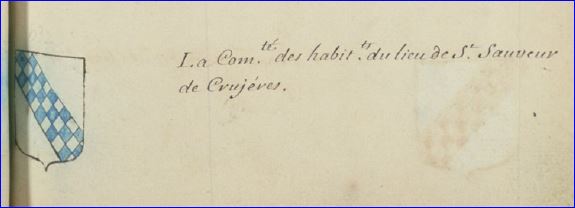 La Com.té des habit.ts du lieu de St. Sauveur
de Crujéres.